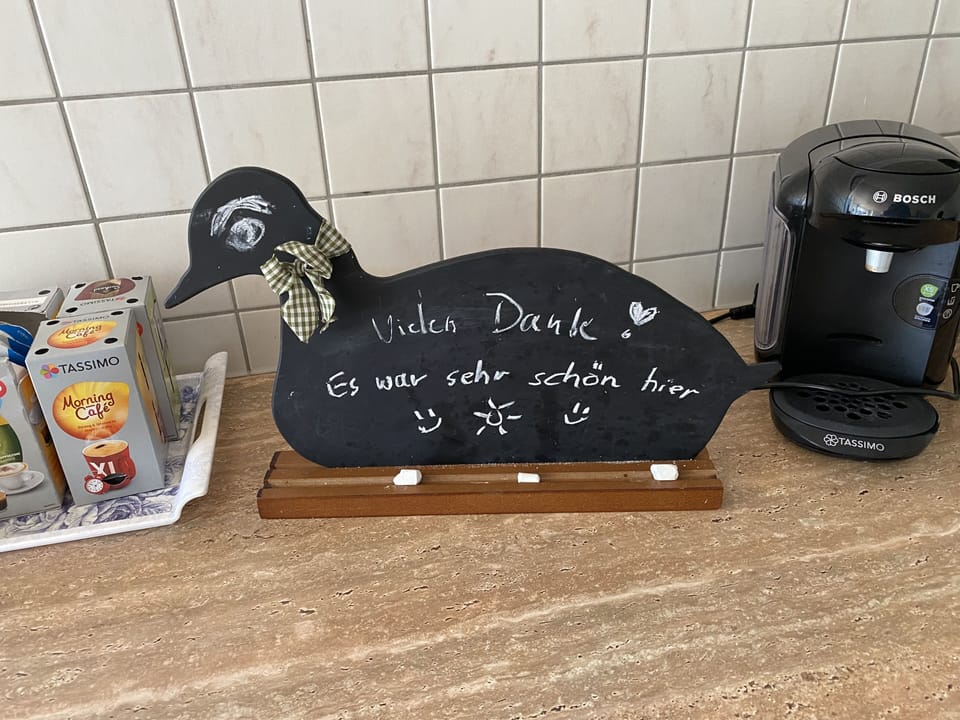 Vielen Danke!
Es war sehr schön hier
BOSCH
TASSIMO
TASSIMO
Morning
Café
XL
Morning
Café